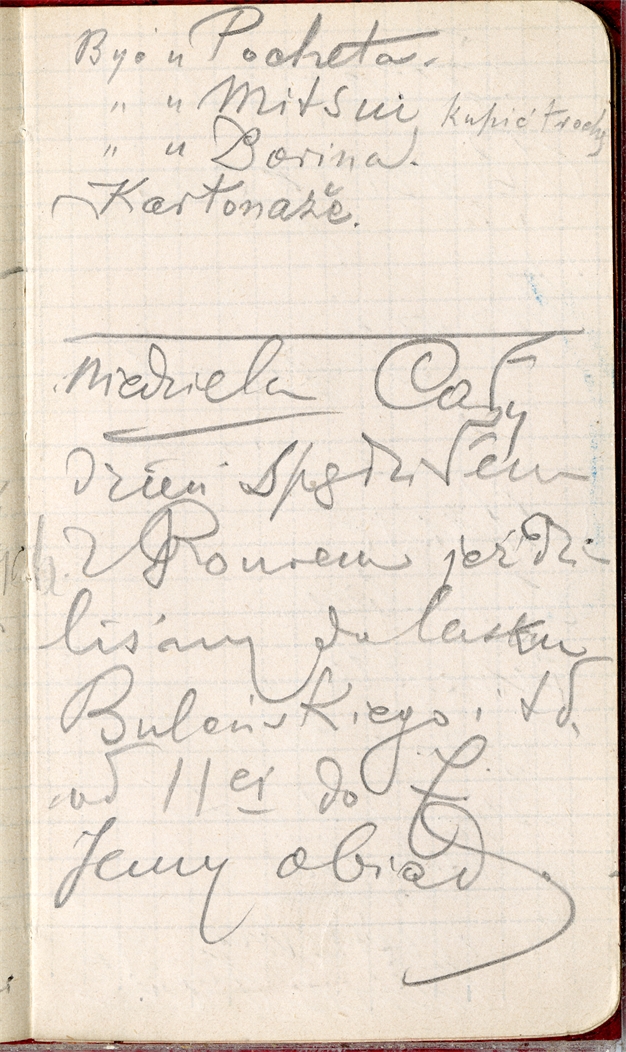 Być u Pocheta.
" u Mitsui kupić trochę
" u Dorina.
Kartonaże.
Niedziela Cały
dzień spędziłem
z Rouxem jeździ-
liśmy do lasku
Buleńskiego i td.
od 11ej do 7
Jemy obiad